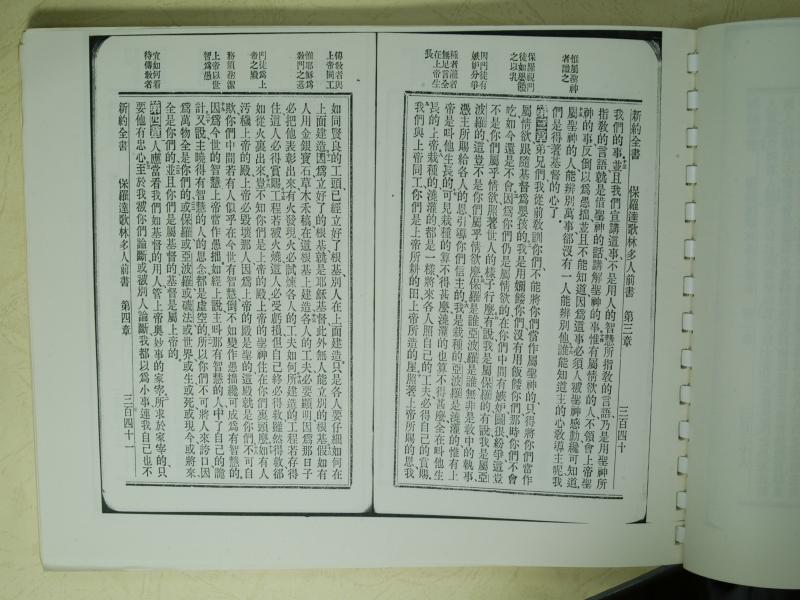 新約全書　保羅達歌林多人前書　第三章　三百四十
我們的事、並且我們宣講這事、不是用人的智慧所指教的言語、乃是用聖神所
指教的言語、就是借聖神的話講解聖神的事、惟有屬情欲的人不領會上帝聖
神的事、反倒以爲愚拙、並且不能知道、因爲這事必須人被聖神感動、纔可知道、
屬聖神的人、能辨別萬事、卻沒有一人能辨別他、誰能知道主的心敎導主呢、我
們是得著基督的心了、
第三章 弟兄們、我從前敎訓你們、不能將你們當作屬聖神的、只得將你們當作
屬情欲的、跟隨基督爲嬰孩的、我是用嬭餧你們、沒有用飯餧你們、那時你們不會
吃、如今還是不會、因爲你們仍是屬情欲的、在你們中間有嫉妒、園很紛爭、這豈
不是你們屬乎情欲、照著世人的樣子行麽、有說我是屬保羅的、有說我是屬亞
波羅的、豈不是你們屬乎情欲麽、保羅是誰、亞波羅是誰、無非是敎中的執事、
憑主所賜給各人的恩、引導你們信主的、我是栽種的、亞波羅是澆灌的、惟有上
帝是叫他生長的、可見栽種的算不得甚麽、澆灌的也算不得甚麽、全在叫他生
長的上帝、栽種的澆灌的、都是一樣、將來各人照自己的工夫、必得自己的賞賜、
我們與上帝同工、你們是上帝所耕的田、上帝所造的屋、照著上帝所賜的恩、我
惟屬聖神
者識之
保羅視門
徒如嬰孩
之以乳
因門徒有
嫉妒分爭
種者灌者
無足言全
在上帝生
長
如同賢良的工頭、已經立好了根基、別人在上面建造、只是各人要仔細如何在
上面建造、因爲立好了的根基、就是耶穌基督、此外無人能立別的根基、假如有
人用金銀寶石草木禾稿、在這根基上建造、各人的工夫必要顯明、因爲那日子
必把他表彰出來、有火發現、火必試煉各人的工夫如何、所建造的工程若存得
住、這人必得賞賜、工程若被火燒、這人必受虧損、但自己終必得救、雖然得救、卻
如從火裏出來、豈不知你們是上帝的殿、上帝的聖神住在你們裏頭麽、如有人
汚穢上帝的殿、上帝必毀壞那人、因爲上帝的殿是聖的、這殿就是你們、不可自
欺、你們中間若有人似乎在今世有智慧、倒不如變作愚拙、纔可成爲有智慧的、
因爲今世的智慧、上帝當作愚拙、如經上說、主叫那有智慧的人中了自己的詭
計、又說、主曉得有智慧的人的思念、都是虛空的、所以你們不可將人來誇口、因
爲萬物全是你們的、或保羅、或亞波羅、或磯法、或世界、或生、或死、或現今、或將來、
全是你們的、並且你們是屬基督的、基督是屬上帝的、
第四章 人應當看我們、如基督的用人、管上帝奧妙事的家宰、所求於家宰的、只
要他有忠心、至於我被你們論斷、或被別人論斷、我都以爲小事、連我自己也不
新約全書　保羅達歌林多人前書　第四章　三百四十一
傳敎者與
上帝同工
惟耶穌爲
敎門之基
門徒爲上
帝之殿
務須聖潔
上帝以世
智爲愚
宜如何看
待傳敎者